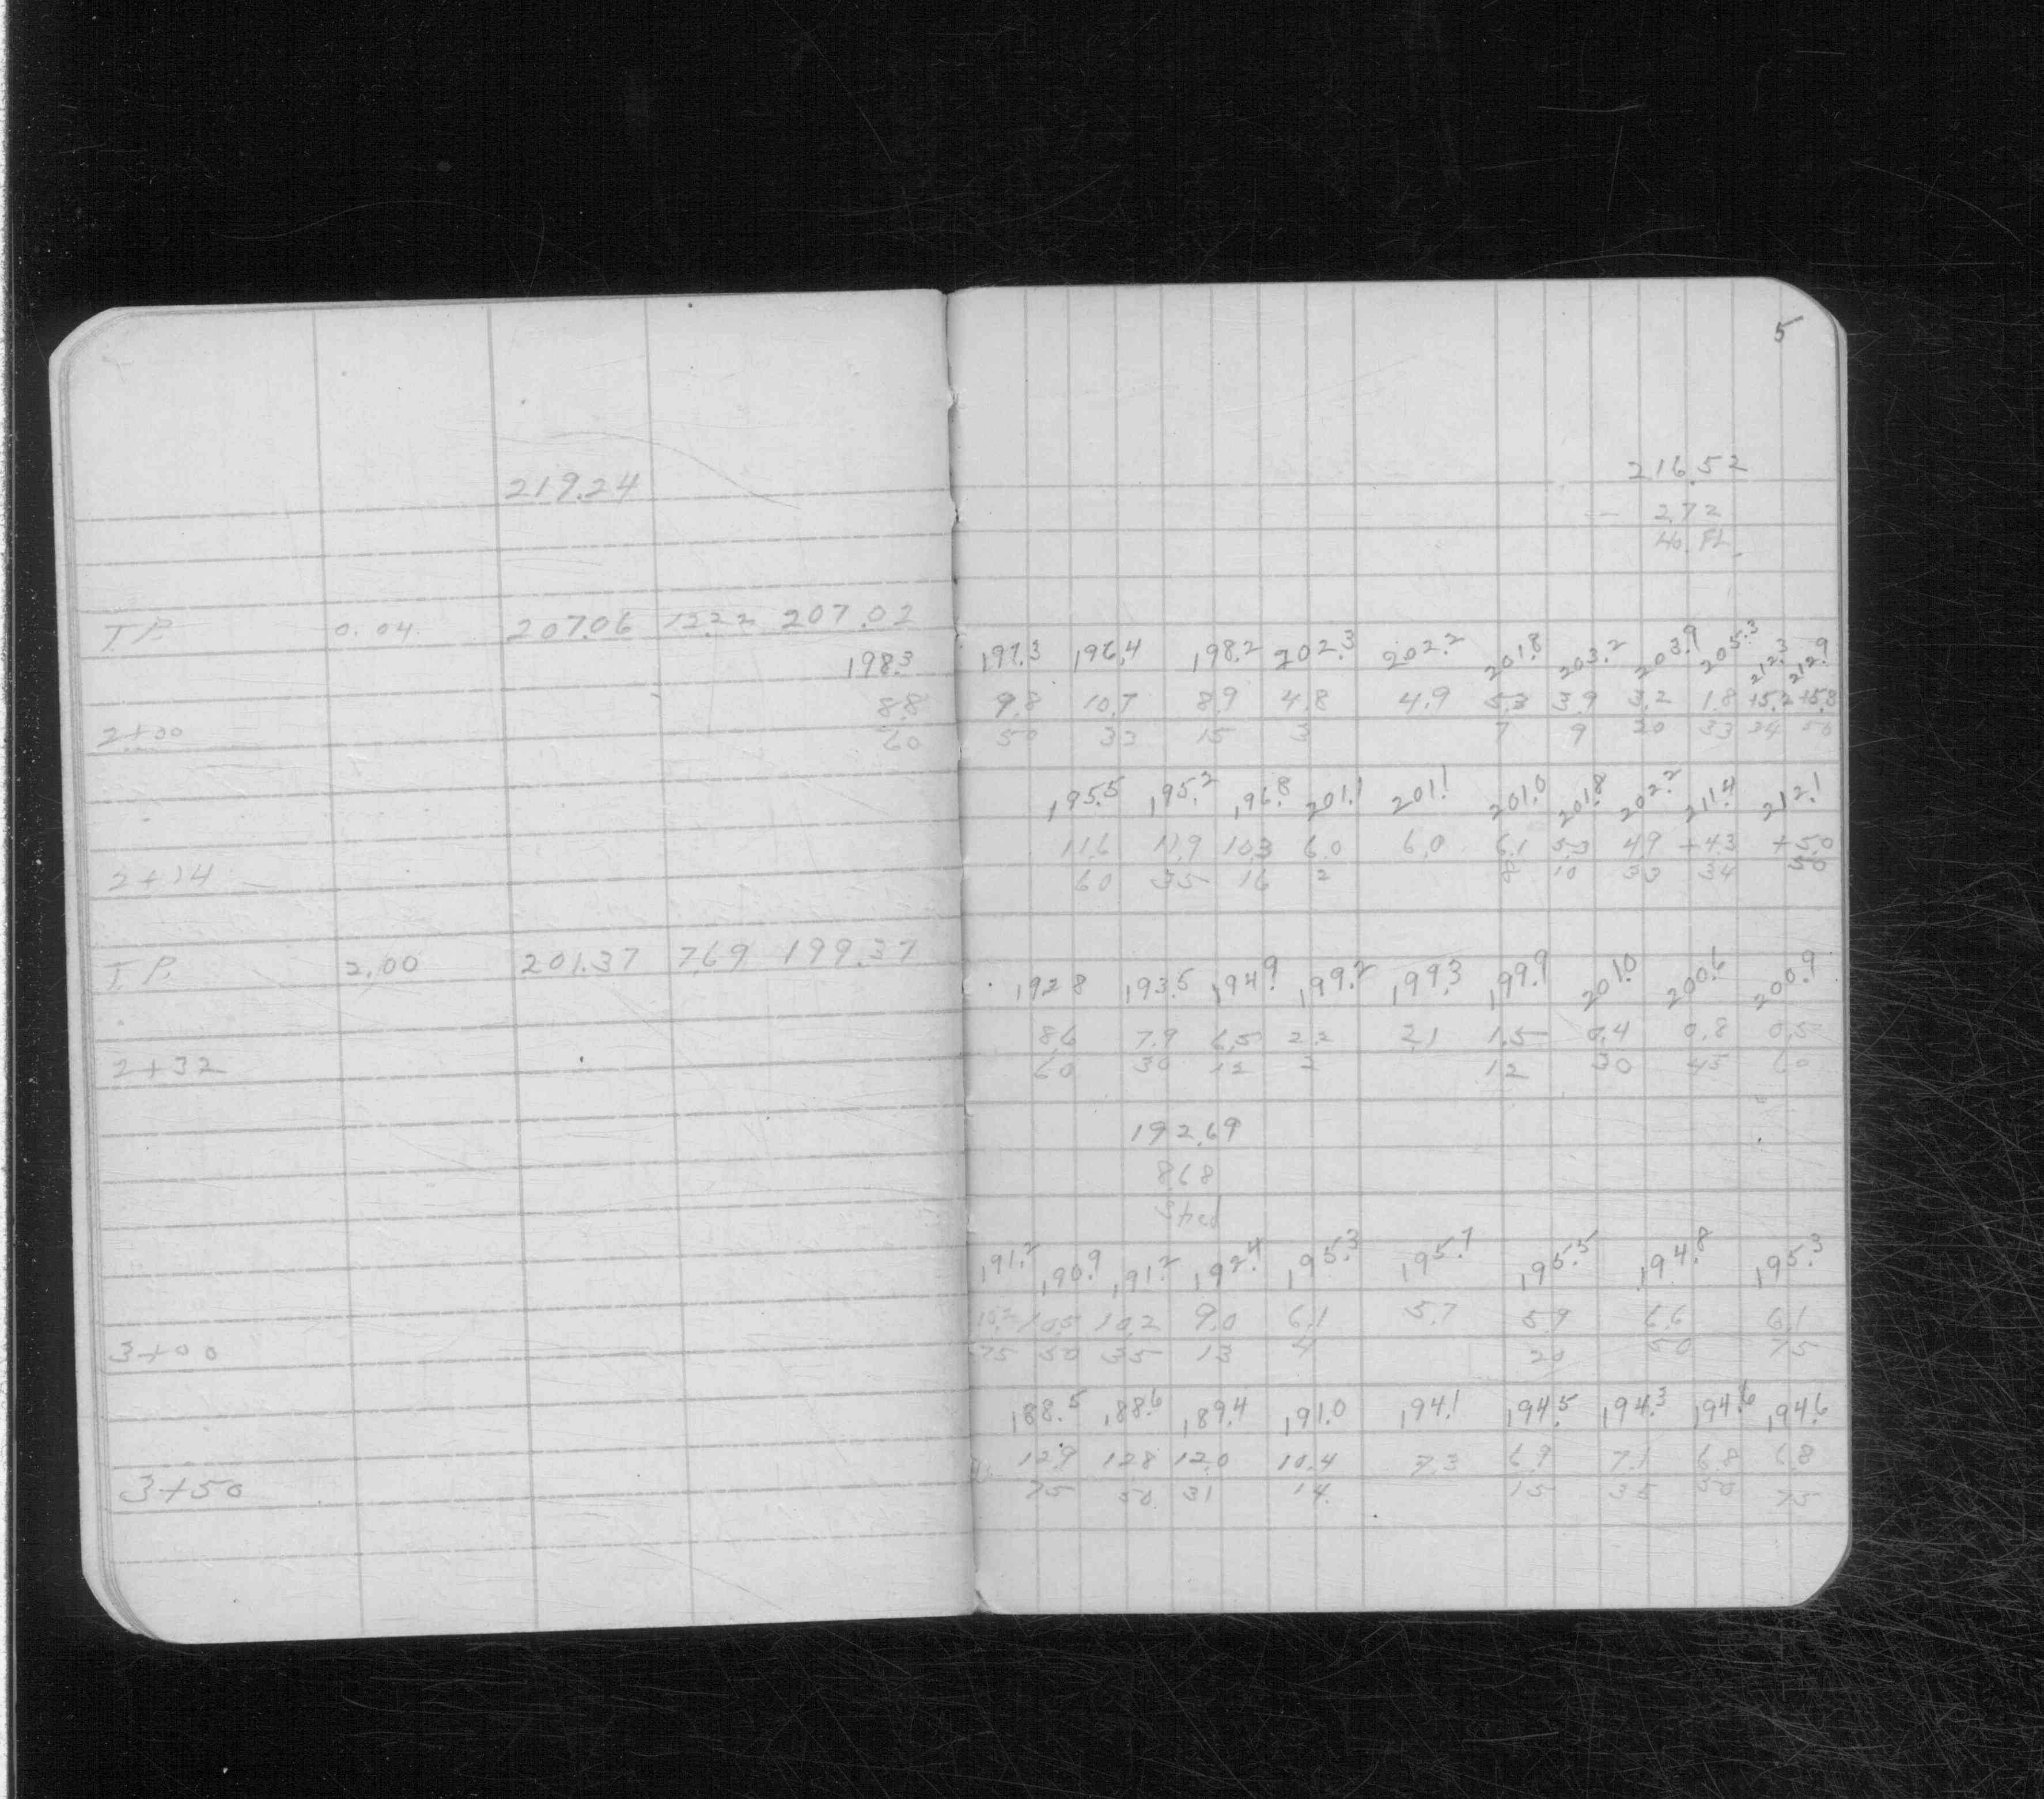 5
216.52
219.24
2.72
T.P. 0.04 207.06 12.22 207.02
198.3 197.3 196.4 198.2 202.3 202.2 201.8 203.2 203.9 205.3 212.3 212.9
8.8 9.8 10.7 8.9 4.8 4.9 5.3 3.9 3.2 1.8 +5.2 +5.8
2+00 60 50 33 15 3 7 9 20 33 34 50
195.5 195.2 196.8 201.1 201.1 201.0 201.8 202.2 211.4 212.1
11.6 11.9 10.3 6.0 6.0 6.1 5.3 4.9 +4.3 +5.0
2+14 60 35 16 2 8 10 33 34 50
T.P. 2.00 201.37 7.69 199.37
192.8 193.5 194.9 199.2 199.3 199.9 201.0 200.6 200.9
8.6 7.9 6.5 2.2 2.1 1.5 0.4 0.8 0.5
2+32 60 30 12 2 12 30 45 60
192.69
8.68
191.2 190.9 191.2 192.4 195.3 195.7 195.5 194.8 195.3
10.2 10.5 10.2 9.0 6.1 5.7 5.9 6.6 6.1
3+00 75 50 35 13 4 20 50 75
188.5 188.6 189.4 191.0 194.1 194.5 194.3 194.6 194.6
12.9 12.8 12.0 10.4 7.3 6.9 7.1 6.8 6.8
3+50 75 50 31 14 15 35 50 75